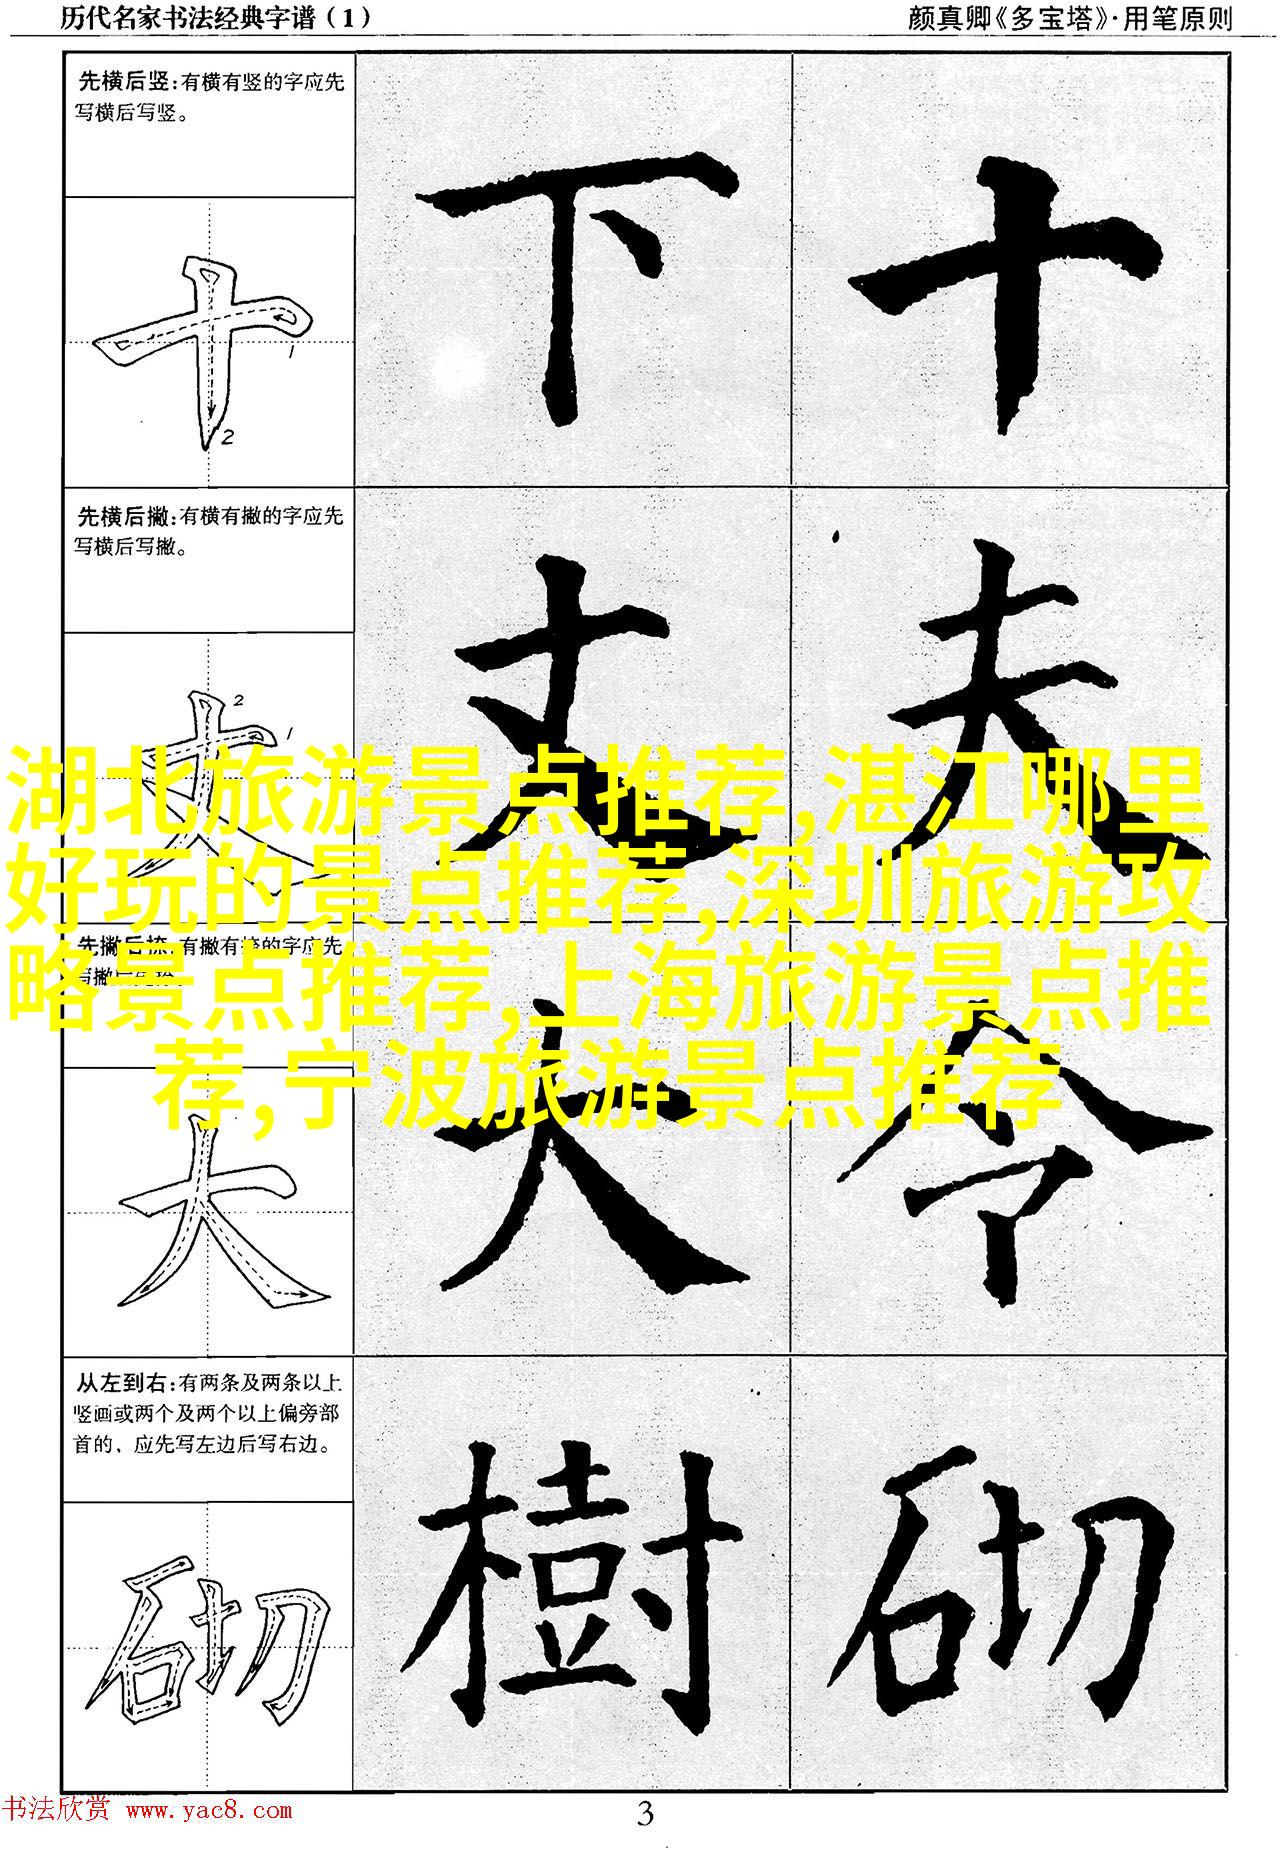 历代名家书法经典字谱(1) 颜真卿《多宝塔》·用笔原则
先横后竖:有横有竖的字应先
写横后写竖。
下 十
1
2
先横后撇:有横有撇的字应先
写横后写撇。
丈 夫
2
1
湖北旅游景点推荐,湛江哪里
好玩的景点推荐,深圳旅游攻
略景点推荐,上海旅游景点推
荐,宁波旅游景点推荐
先撇后捺:有撇有捺的字应先
写撇后写捺。
大 令
从左到右:有两条及两条以上
竖画或两个及两个以上偏旁部
首的,应先写左边后写右边。
樹 砌
书法欣赏 www.yac8.com
3